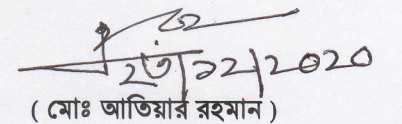 ২৩/১২/২০২০
( মোঃ আতিয়ার রহমান )